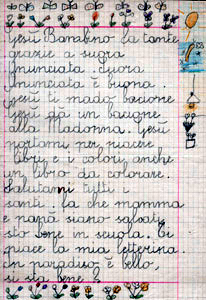 Gesù Bambino fa tante
grazie a suora
Annunciata. Suora
Annunciata è buona.
Gesù ti mado bacione
Gesù dà un bacione
alla Madonna. Gesù
portami per piacere
libri e i colori, anche
un libro da colorare.
Salutami tutti i
santi. Fa che mamma
e papà siano salvati,
sto bene in scuola. Ti
piace la mia letterina.
In paradiso è bello,
si sta bene?